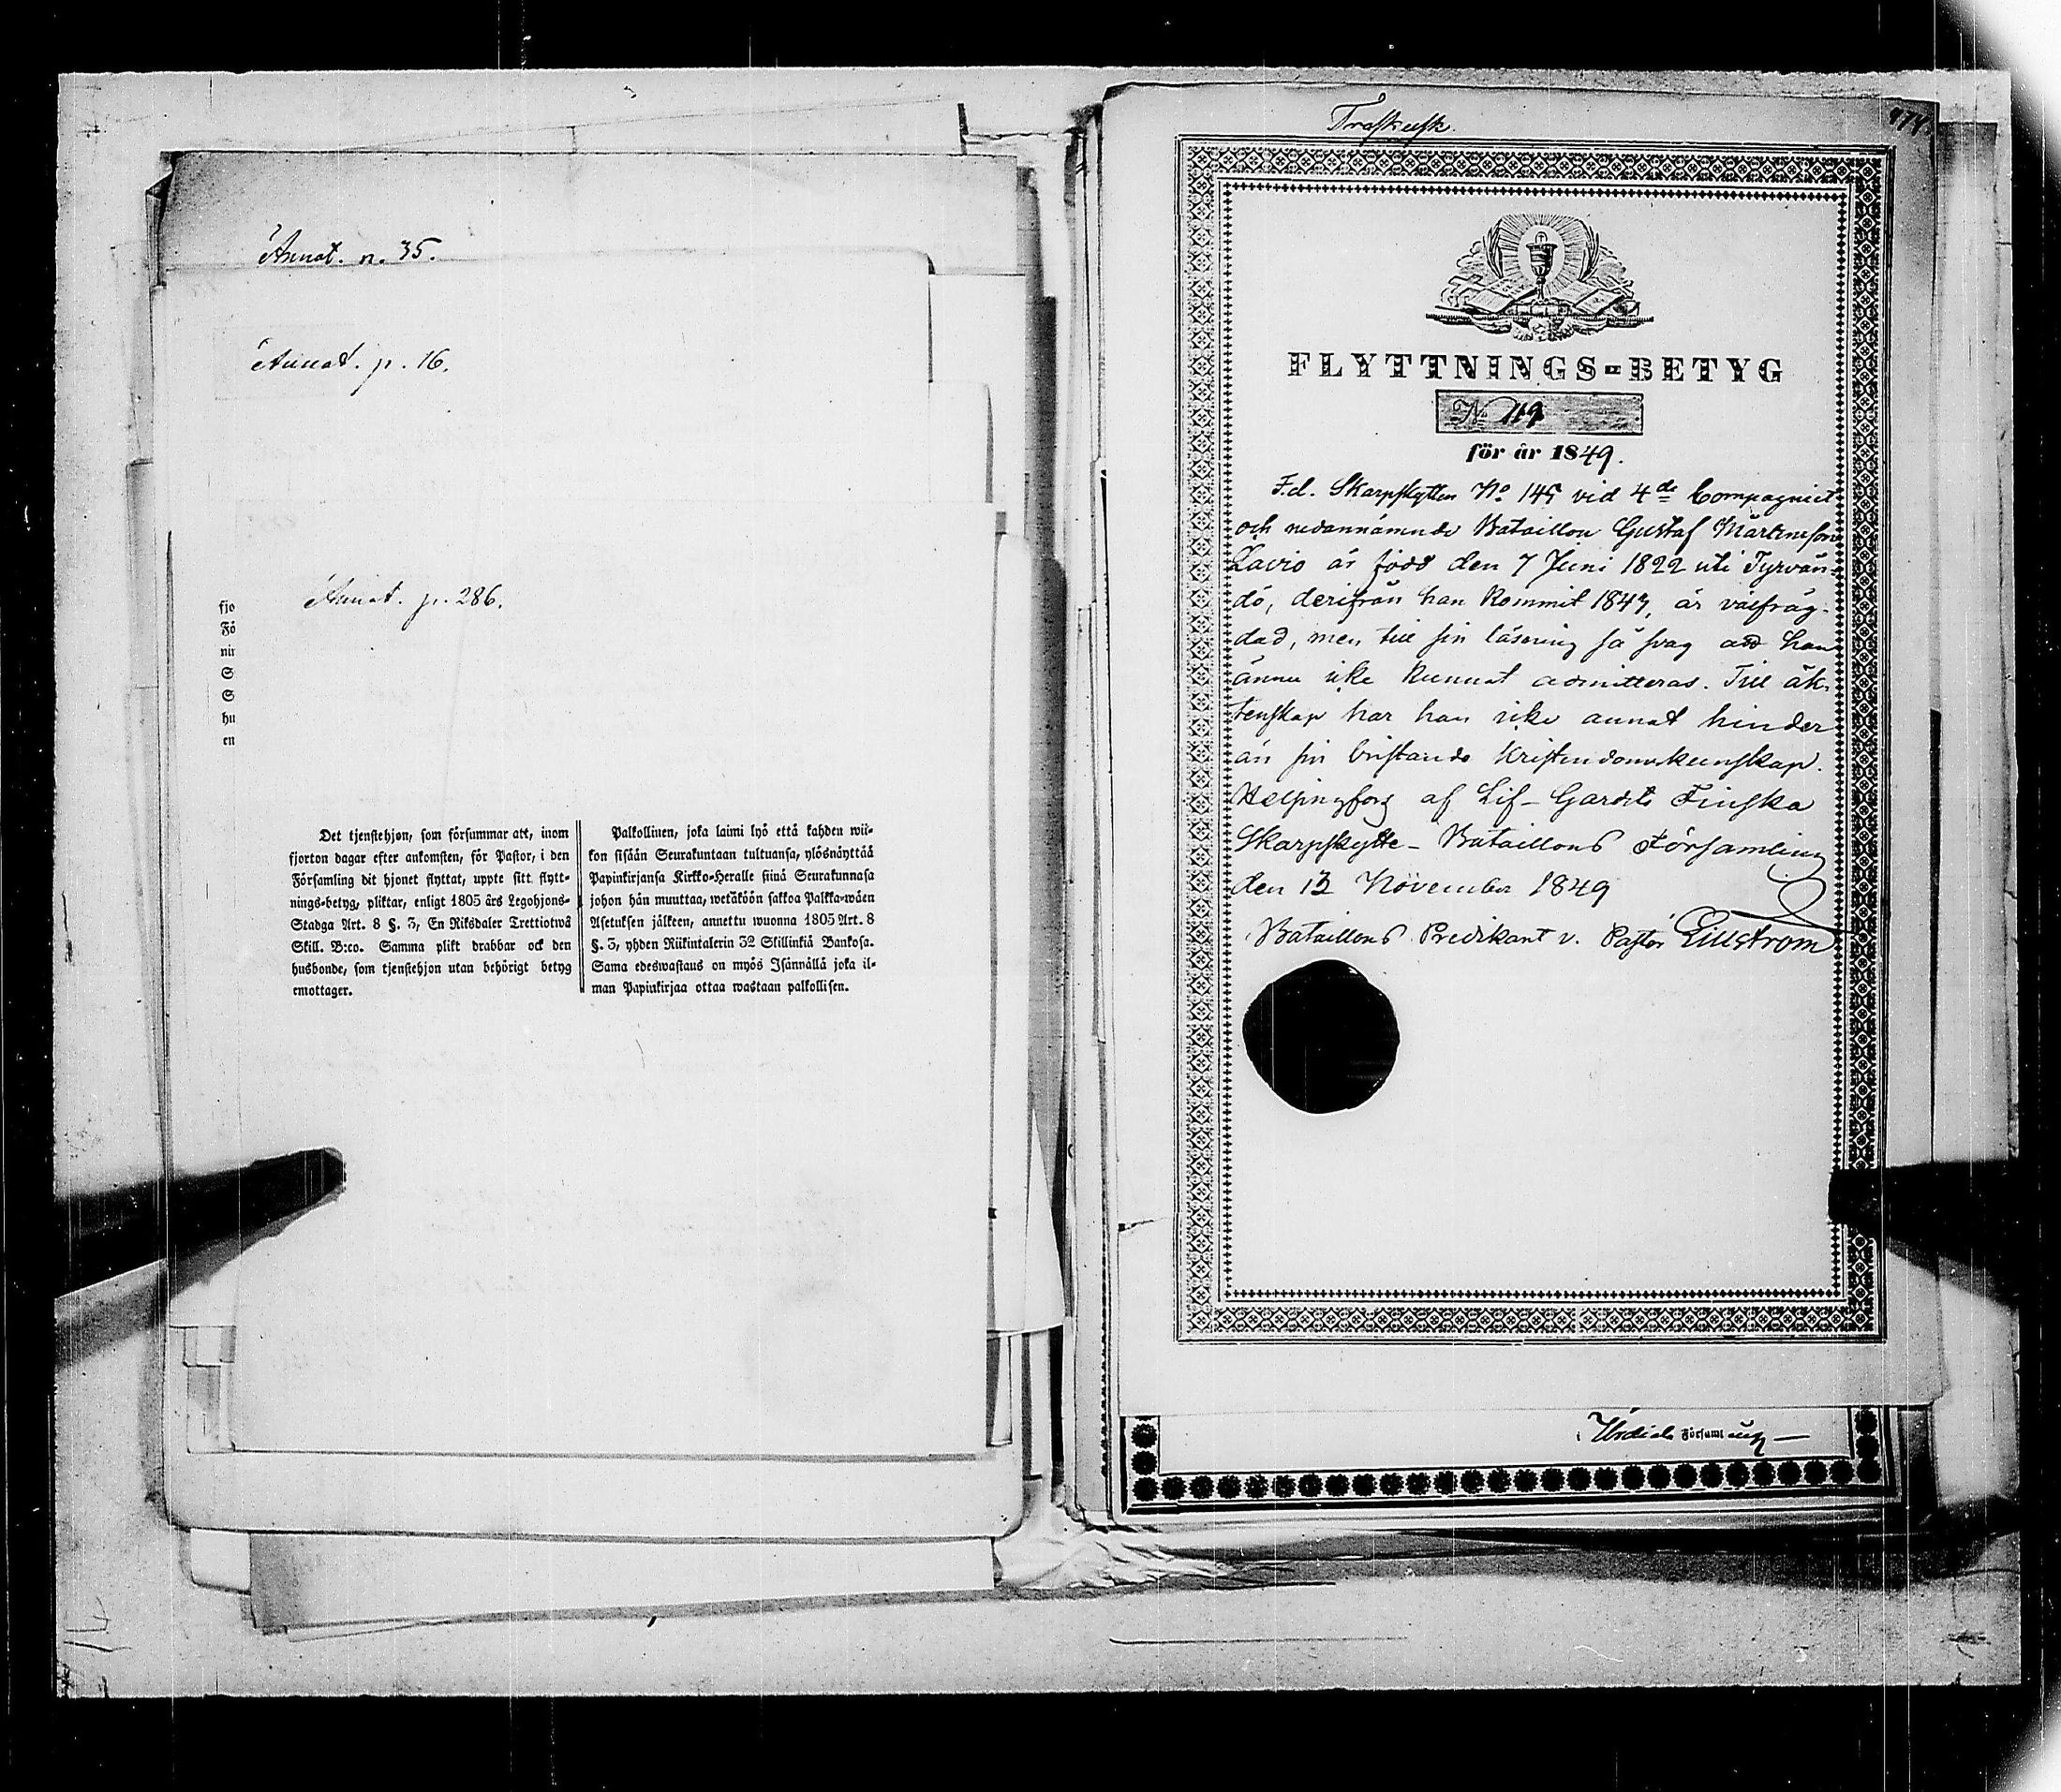 Annot. p. 35.
Annot. p. 16.
Annot. p. 286.
fjo
Fö
nin
S
S
hu
en
Det tjenstehjon, som försummar att, inom
fjorton dagar efter ankomsten, för Pastor, i den
Församling dit hjonet flyttat, uppte sitt flytt-
nings-betyg, pliktar, enligt 1805 års Legohjons-
Stadga Art. 8 §. 3, En Riksdaler Trettiotwå
Skill. B:co. Samma plikt drabbar ock den
husbonde, som tjenstehjon utan behörigt betyg
emottager.
Palkollinen, joka laimi lyö että kahden wii-
kon sisään Seurakuntaan tultuansa, ylösnäyttää
Papinkirjansa Kirkko-Heralle siinä Seurakunnasa
johon hän muuttaa, wetäköön sakkoa Palkka-wäen
Asetuksen jälkeen, annettu wuonna 1805 Art. 8
§. 3, yhden Riikintalerin 32 Skillinkiä Bankosa.
Sama edeswastaus on myös Isännällä joka il-
man Papinkirjaa ottaa wastaan palkollisen.
Träskusk.
474
FLYTTNINGS-BETYG
No 119
för år 1849.
F.d. Skarpskytten No 145 vid 4de Compagniet
och nedannämnde Bataillon Gustaf Mårtensson
Lavio är född den 7 Juni 1822 uti Tyrvän-
dö, derifrån han kommit 1847, är välfräg-
dad, men till sin läsning så svag att han
ännu icke kunnat admitteras. Till äk-
tenskap har han icke annat hinder
än sin bristande Kristendomskunskap.
Helsingfors af Lif-Gardets Finska
Skarpskytte-Bataillons Församling
den 13 November 1849
Bataillons Predikant v. Pastor Lillström
Urdiala Församling